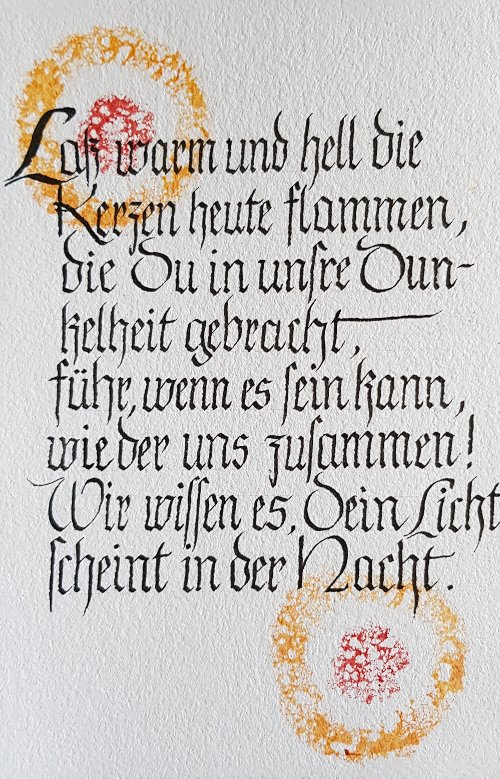 Laß warm und hell die
Kerzen heute flammen,
die Du in unſre Dun-
kelheit gebracht,
führ, wenn es ſein kann,
wieder uns zuſammen!
Wir wiſſen es, Dein Licht
ſcheint in der Nacht.